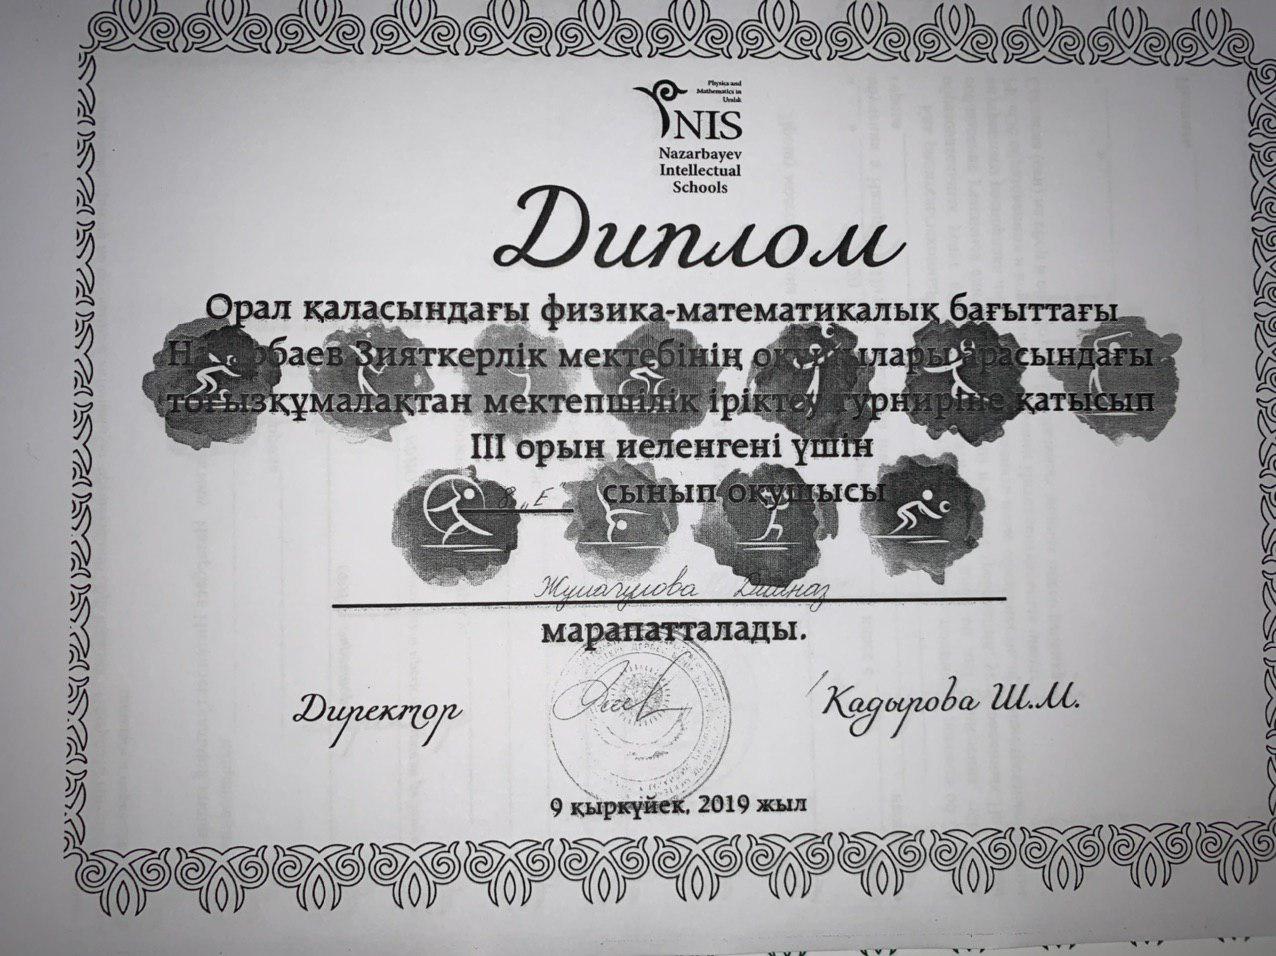 Physics and
Mathematics in
Uralsk
NIS
Nazarbayev
Intellectual
Schools
Диплом
Орал қаласындағы физика-математикалық бағыттағы
Назарбаев Зияткерлік мектебінің оқушылары арасындағы
тоғызқұмалақтан мектепшілік іріктеу турниріне қатысып
III орын иеленгені үшін
8 „Е" сынып оқушысы
Жумагулова Дильназ
марапатталады.
Директор Кадырова Ш.М.
9 қыркүйек, 2019 жыл